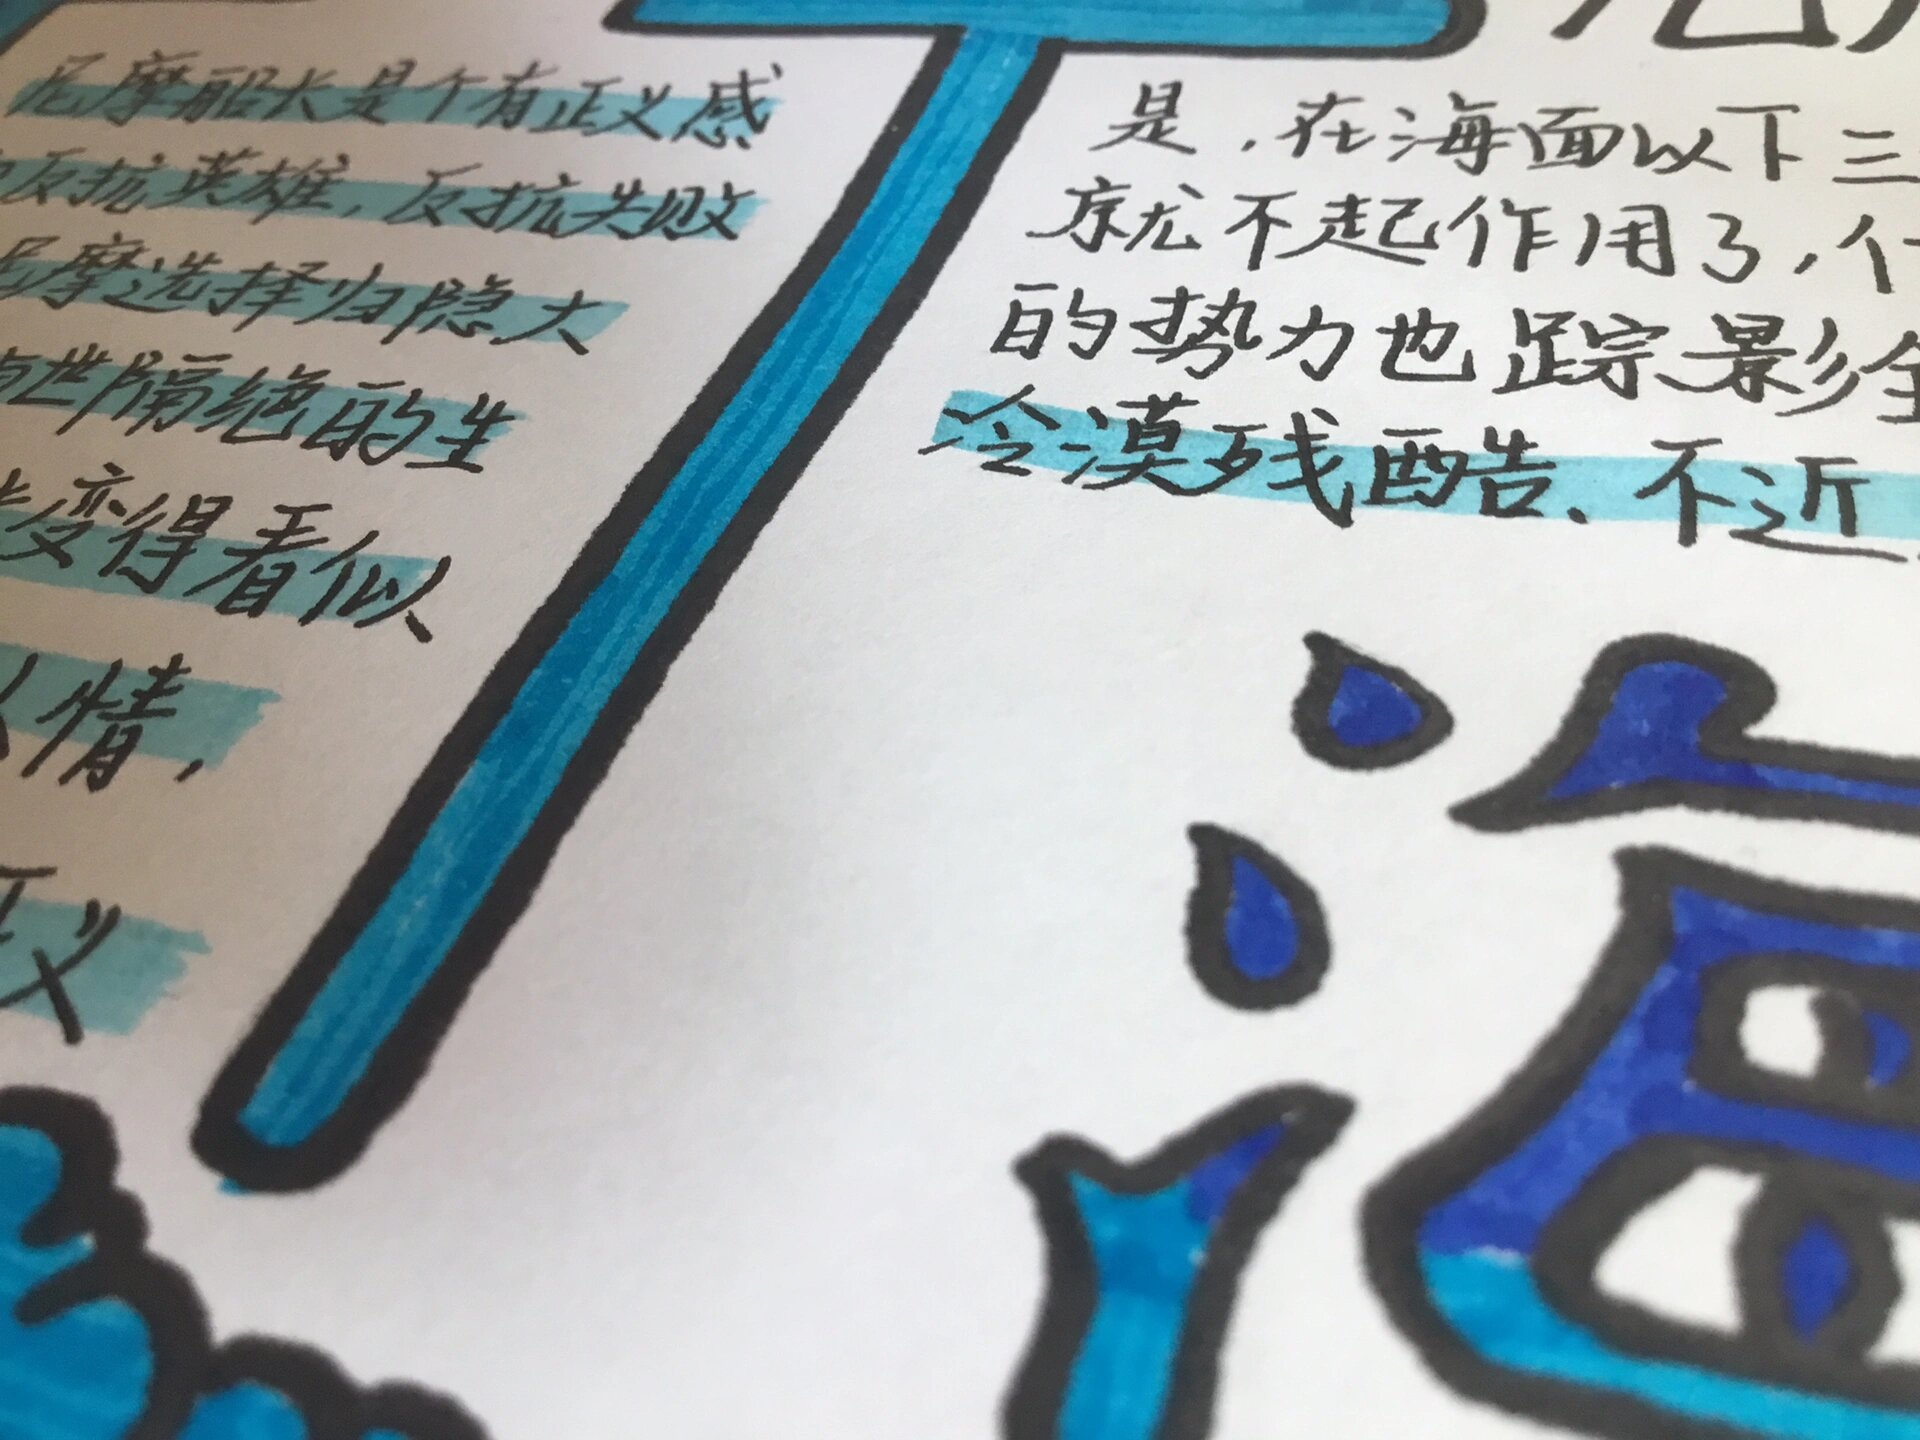 尼摩船长是个有正义感
反抗英雄，反抗失败
尼摩选择归隐大
与世隔绝的生
变得看似
情，
正义
是，在海面以下三
就不起作用了，
的势力也踪影全
冷漠残酷、不近
海